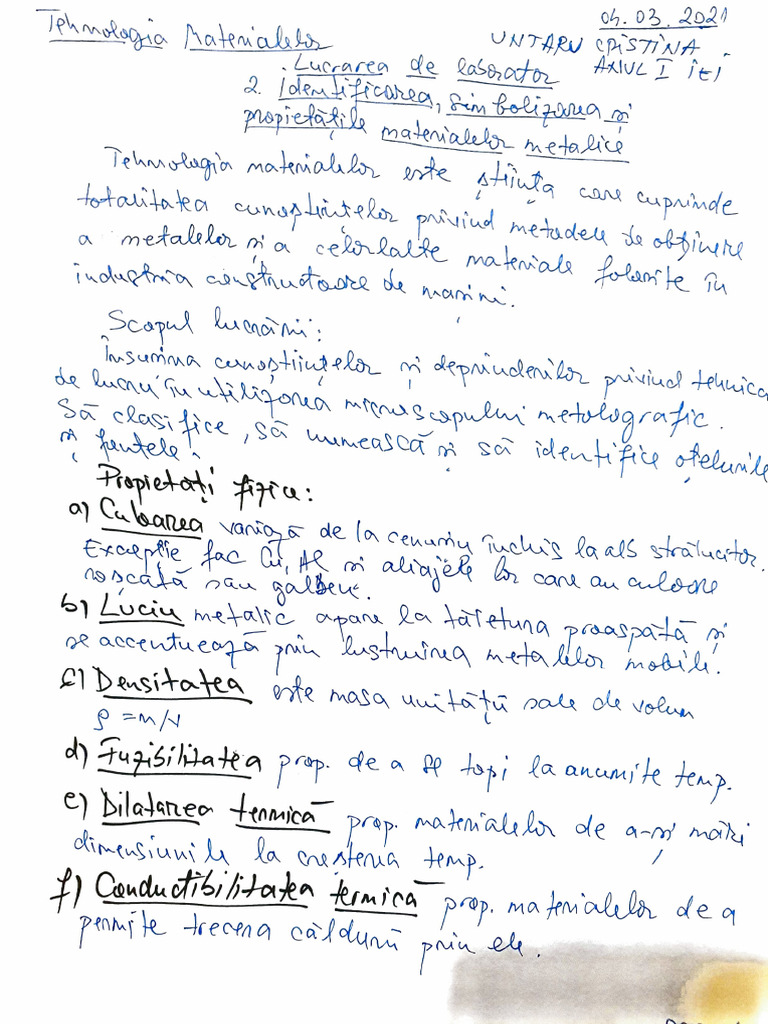 04.03.2021
Tehnologia Materialelor
UNTARU CRISTINA
ANUL I IEI
Lucrarea de laborator
2. Identificarea, simbolizarea și
propietățile materialelor metalice
Tehnologia materialelor este știința care cuprinde
totalitatea cunoștiințelor privind metodele de obținere
a metalelor și a celorlalte materiale folosite în
industria constructoare de mașini.
Scopul lucrării:
Însușirea cunoștiințelor și deprinderilor privind tehnica
de lucru în utilizarea microscopului metolografic.
Să clasifice, să numească și să identifice oțelurile
și fontele.
Propietăți fizice:
a) Culoarea variază de la cenușiu închis la alb strălucitor.
Excepție fac Cu, și aliajele lor care au culoare
roșcată sau galbenă.
b) Luciu metalic apare la tăietura proaspătă și
se accentuează prin lustruirea metalelor mobile.
c) Densitatea este masa unității sale de volum
ρ = m/v
d) Fuzibilitatea prop. de a se topi la anumite temp.
e) Dilatarea termică prop. materialelor de a-și mări
dimensiunile la creșterea temp.
f) Conductibilitatea termică prop. materialelor de a
permite trecerea căldurii prin ele.